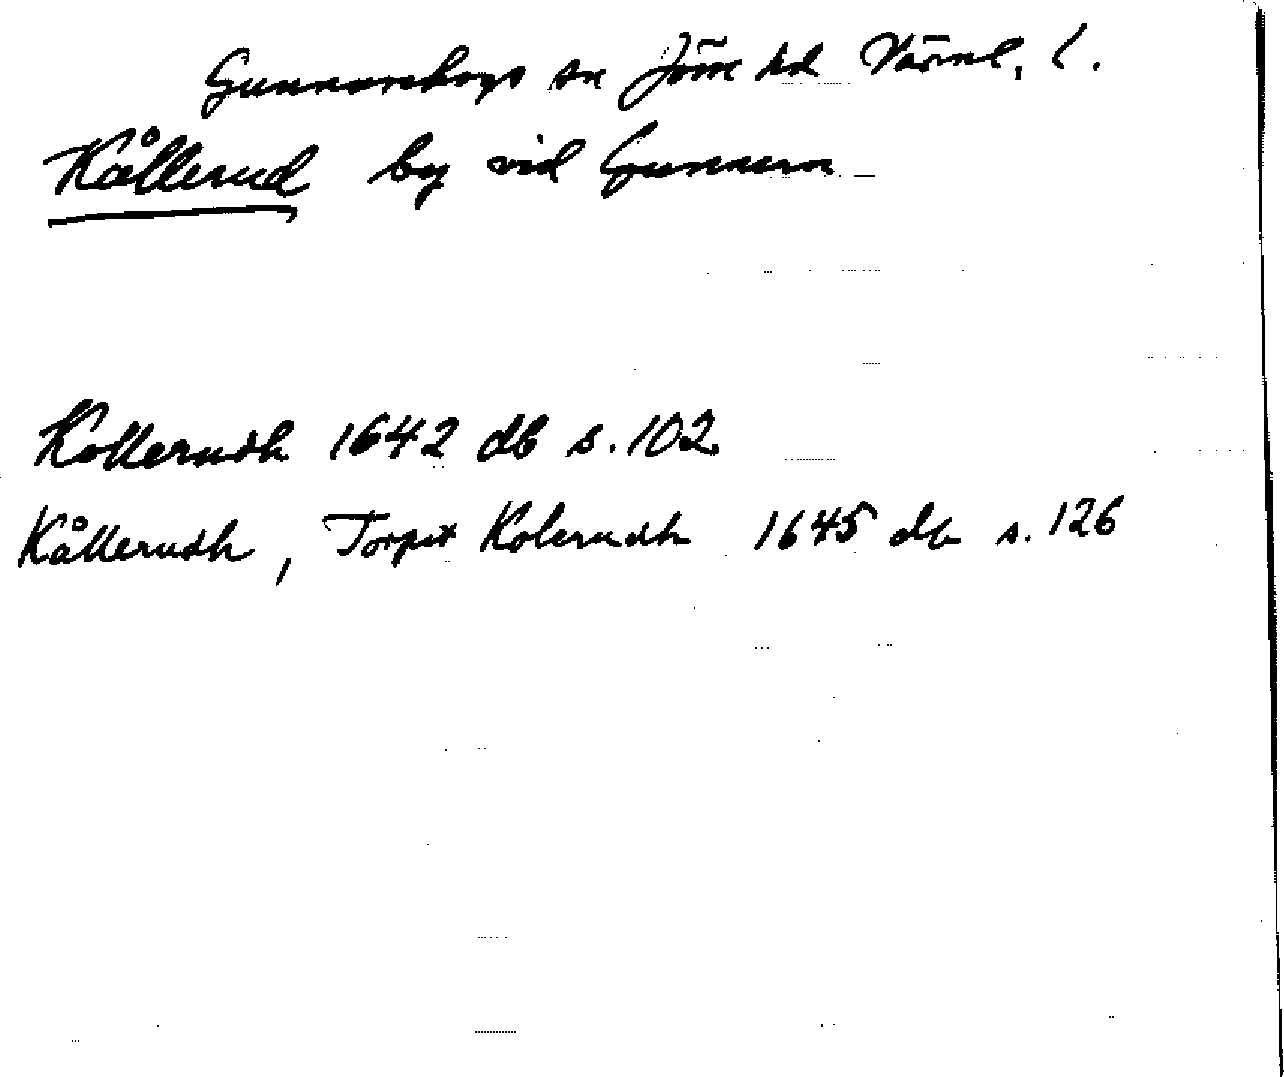 Gunnarskogs sn Jösse hd Värml. l.
Kållerud by vid Gunnern
Kollerudh 1642 db s. 102
Kållerudh, Torpet Kolerudh 1645 db s. 126